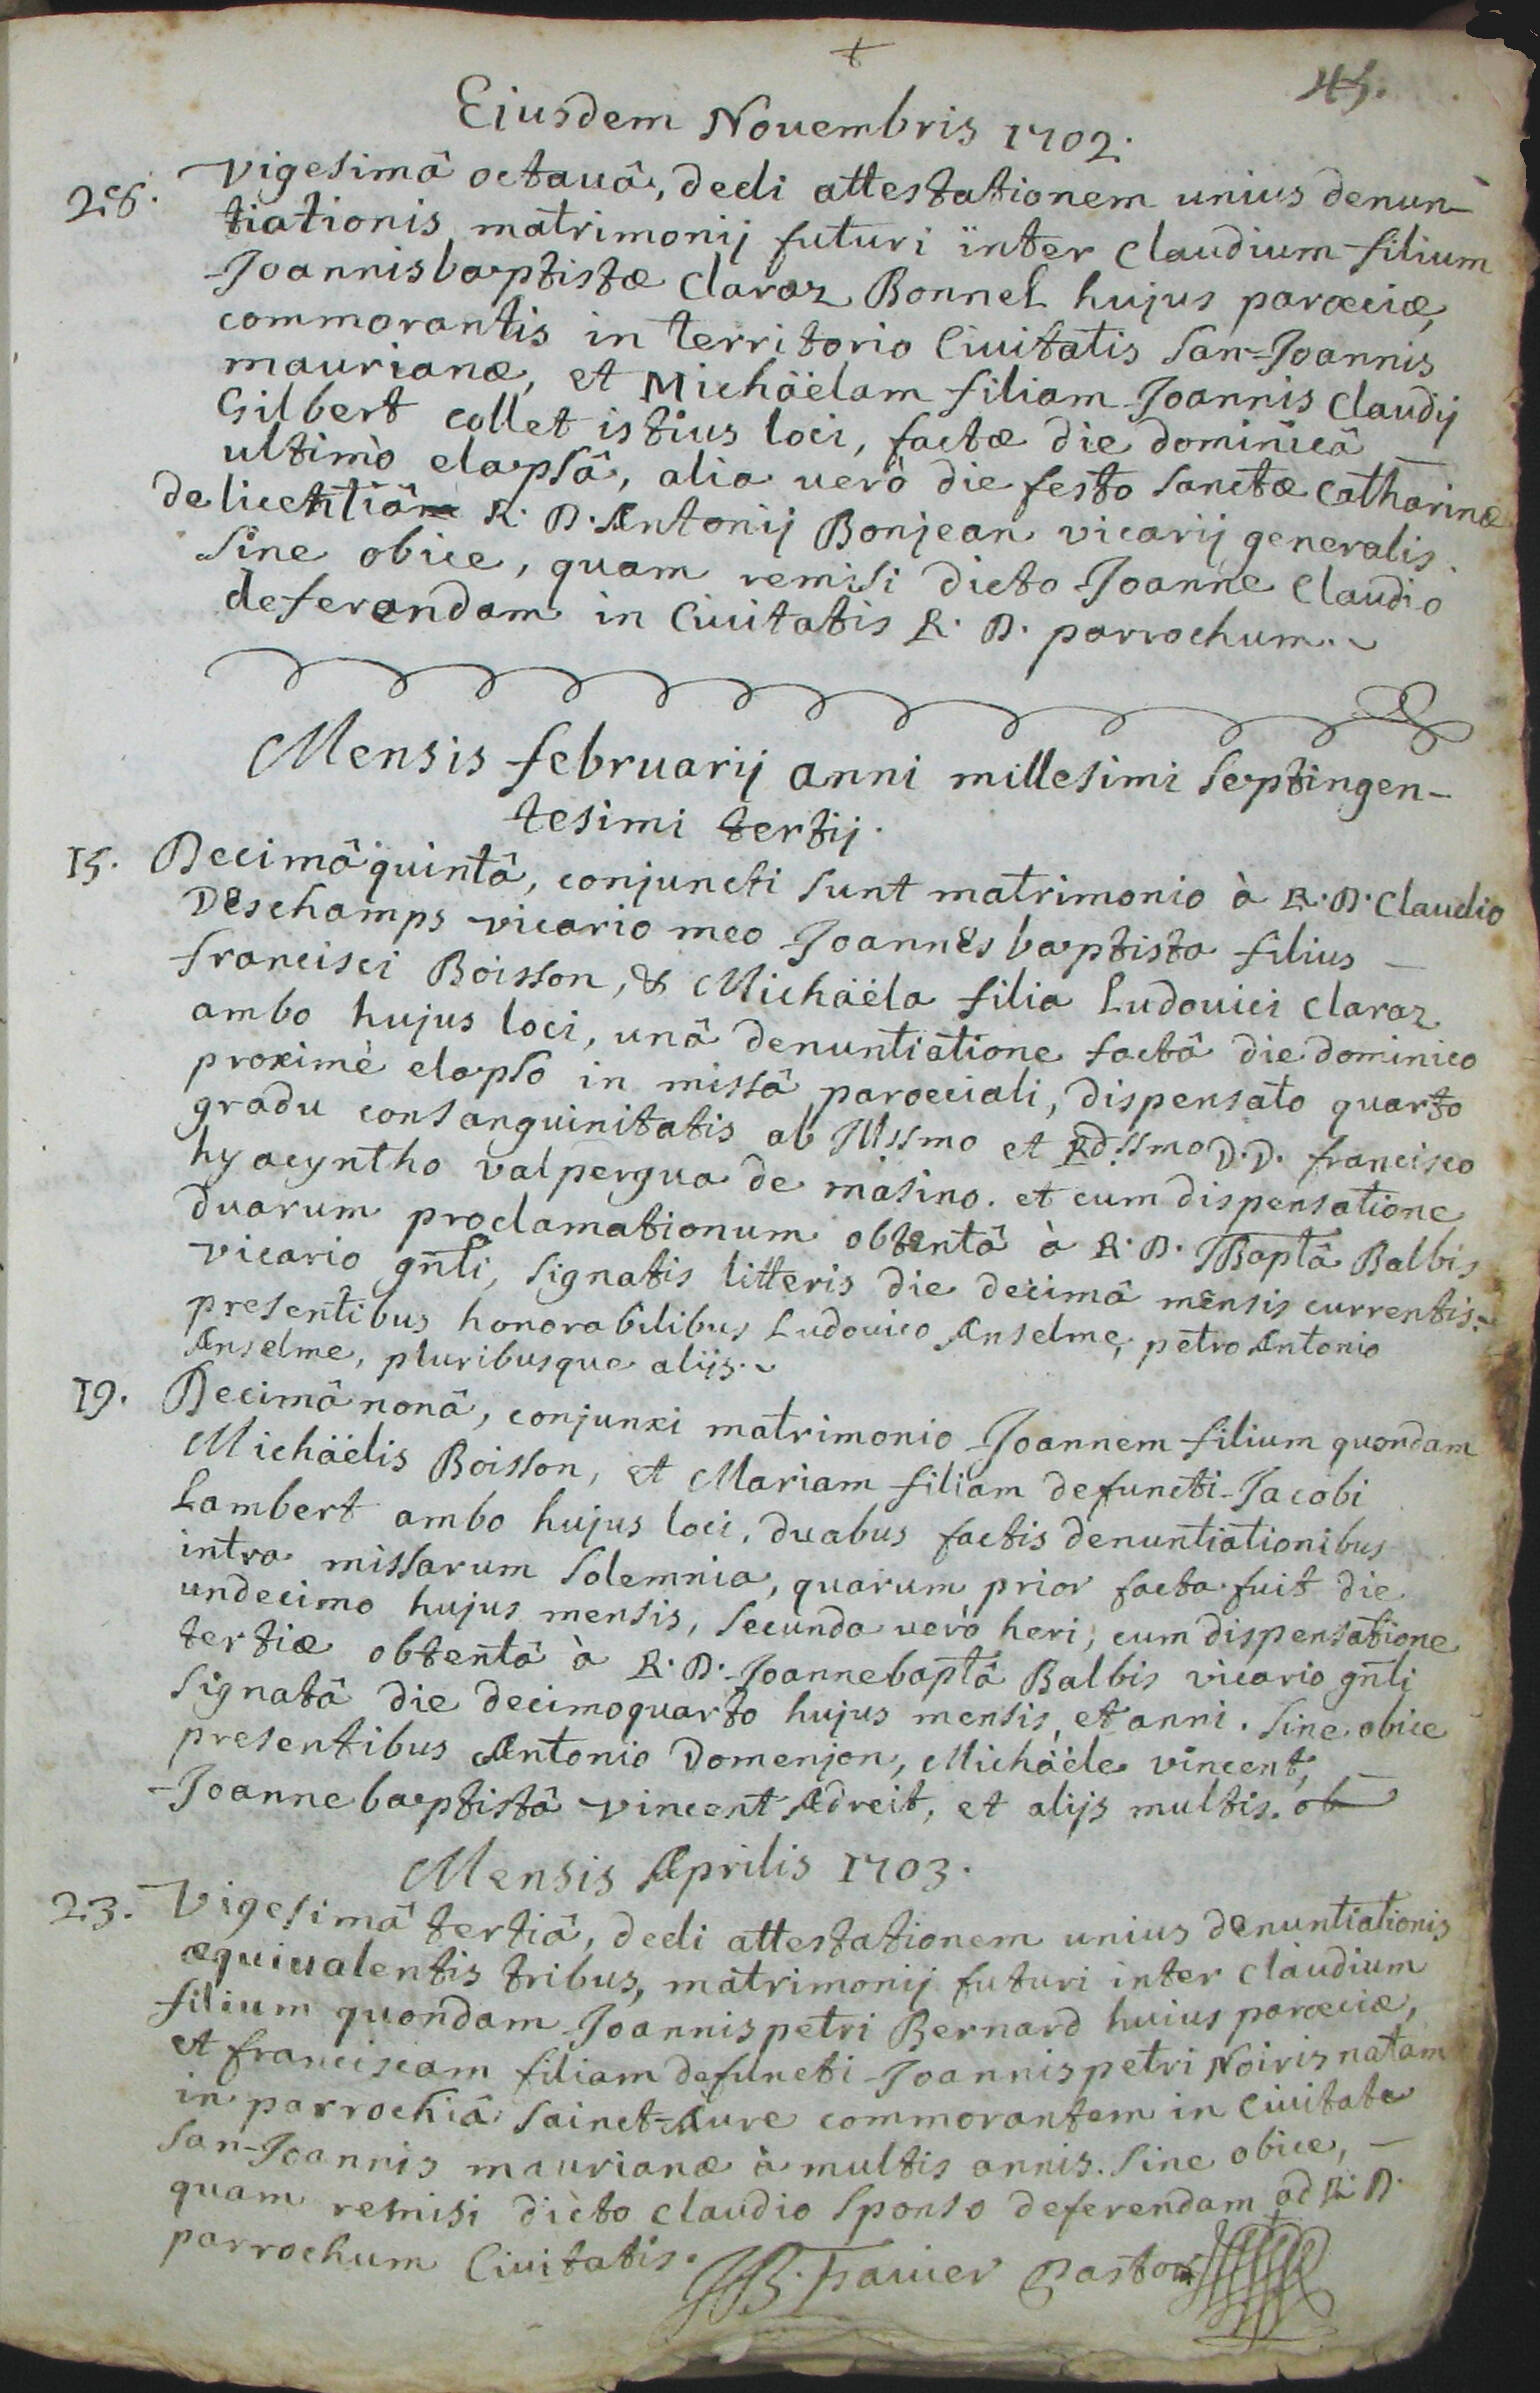 +
45.
Eiusdem Nouembris 1702.
28. vigesimâ octauâ, dedi attestationem unius denun-
tiationis matrimonij futuri inter claudium filium
Joannisbaptistæ Claraz Bonnel hujus parœciæ,
commorantis in territorio Ciuitatis San-Joannis
maurianæ, et Michäelam filiam Joannis Claudij
Gilbert collet istius loci, factæ die dominicâ
ultimò elapsâ, alia uerò die festo sanctæ Catharinæ
de licentiâ R. D. Antonij Bonjean vicarij generalis.
Sine obice, quam remisi dicto Joanne Claudio
deferandam in Ciuitatis R. D. parrochum.
Mensis februarij anni millesimi septingen-
tesimi tertij.
15. Decimâquintâ, conjuncti sunt matrimonio à R. D. Claudio
Deschamps vicario meo Joannesbaptista filius
francisci Boisson, & Michäela filia Ludouici Claraz
ambo hujus loci, unâ denuntiatione factâ die dominico
proximè elapso in missâ parœciali, dispensato quarto
gradu consanguinitatis ab Illssmo et Rdssmo D. D. francisco
hyacyntho valpergua de masino. et cum dispensatione
duarum proclamationum obtentâ à R. D. JBaptâ Balbis
vicario gñli, signatis litteris die decimâ mensis currentis.
presentibus honorabilibus Ludouico Anselme, petro Antonio
Anselme, pluribusque alijs.
19. Decimânonâ, conjunxi matrimonio Joannem filium quondam
Michäelis Boisson, et Mariam filiam defuncti Jacobi
Lambert ambo hujus loci, duabus factis denuntiationibus
intra missarum solemnia, quarum prior facta fuit die
undecimo hujus mensis, secunda uerò heri, cum dispensatione
tertiæ obtentâ à R. D. Joannebaptâ Balbis vicario gñli
signatâ die decimoquarto hujus mensis, et anni. Sine obice
presentibus Antonio Domenjon, Michäele vincent,
Joannebaptistâ vincent Adreit, et alijs multis. ob
Mensis Aprilis 1703.
23. Vigesimâ tertiâ, dedi attestationem unius denuntiationis
æquiualentis tribus, matrimonij futuri inter claudium
filium quondam Joannispetri Bernard huius parœciæ,
et franciscam filiam defuncti Joannispetri Noiris natam
in parrochiâ Sainct-Aure commorantem in Ciuitate
San-Joannis maurianæ à multis annis. Sine obice,
quam remisi dicto claudio sponso deferendam ad R. D.
parrochum Ciuitatis. JB. Fauier Pastor